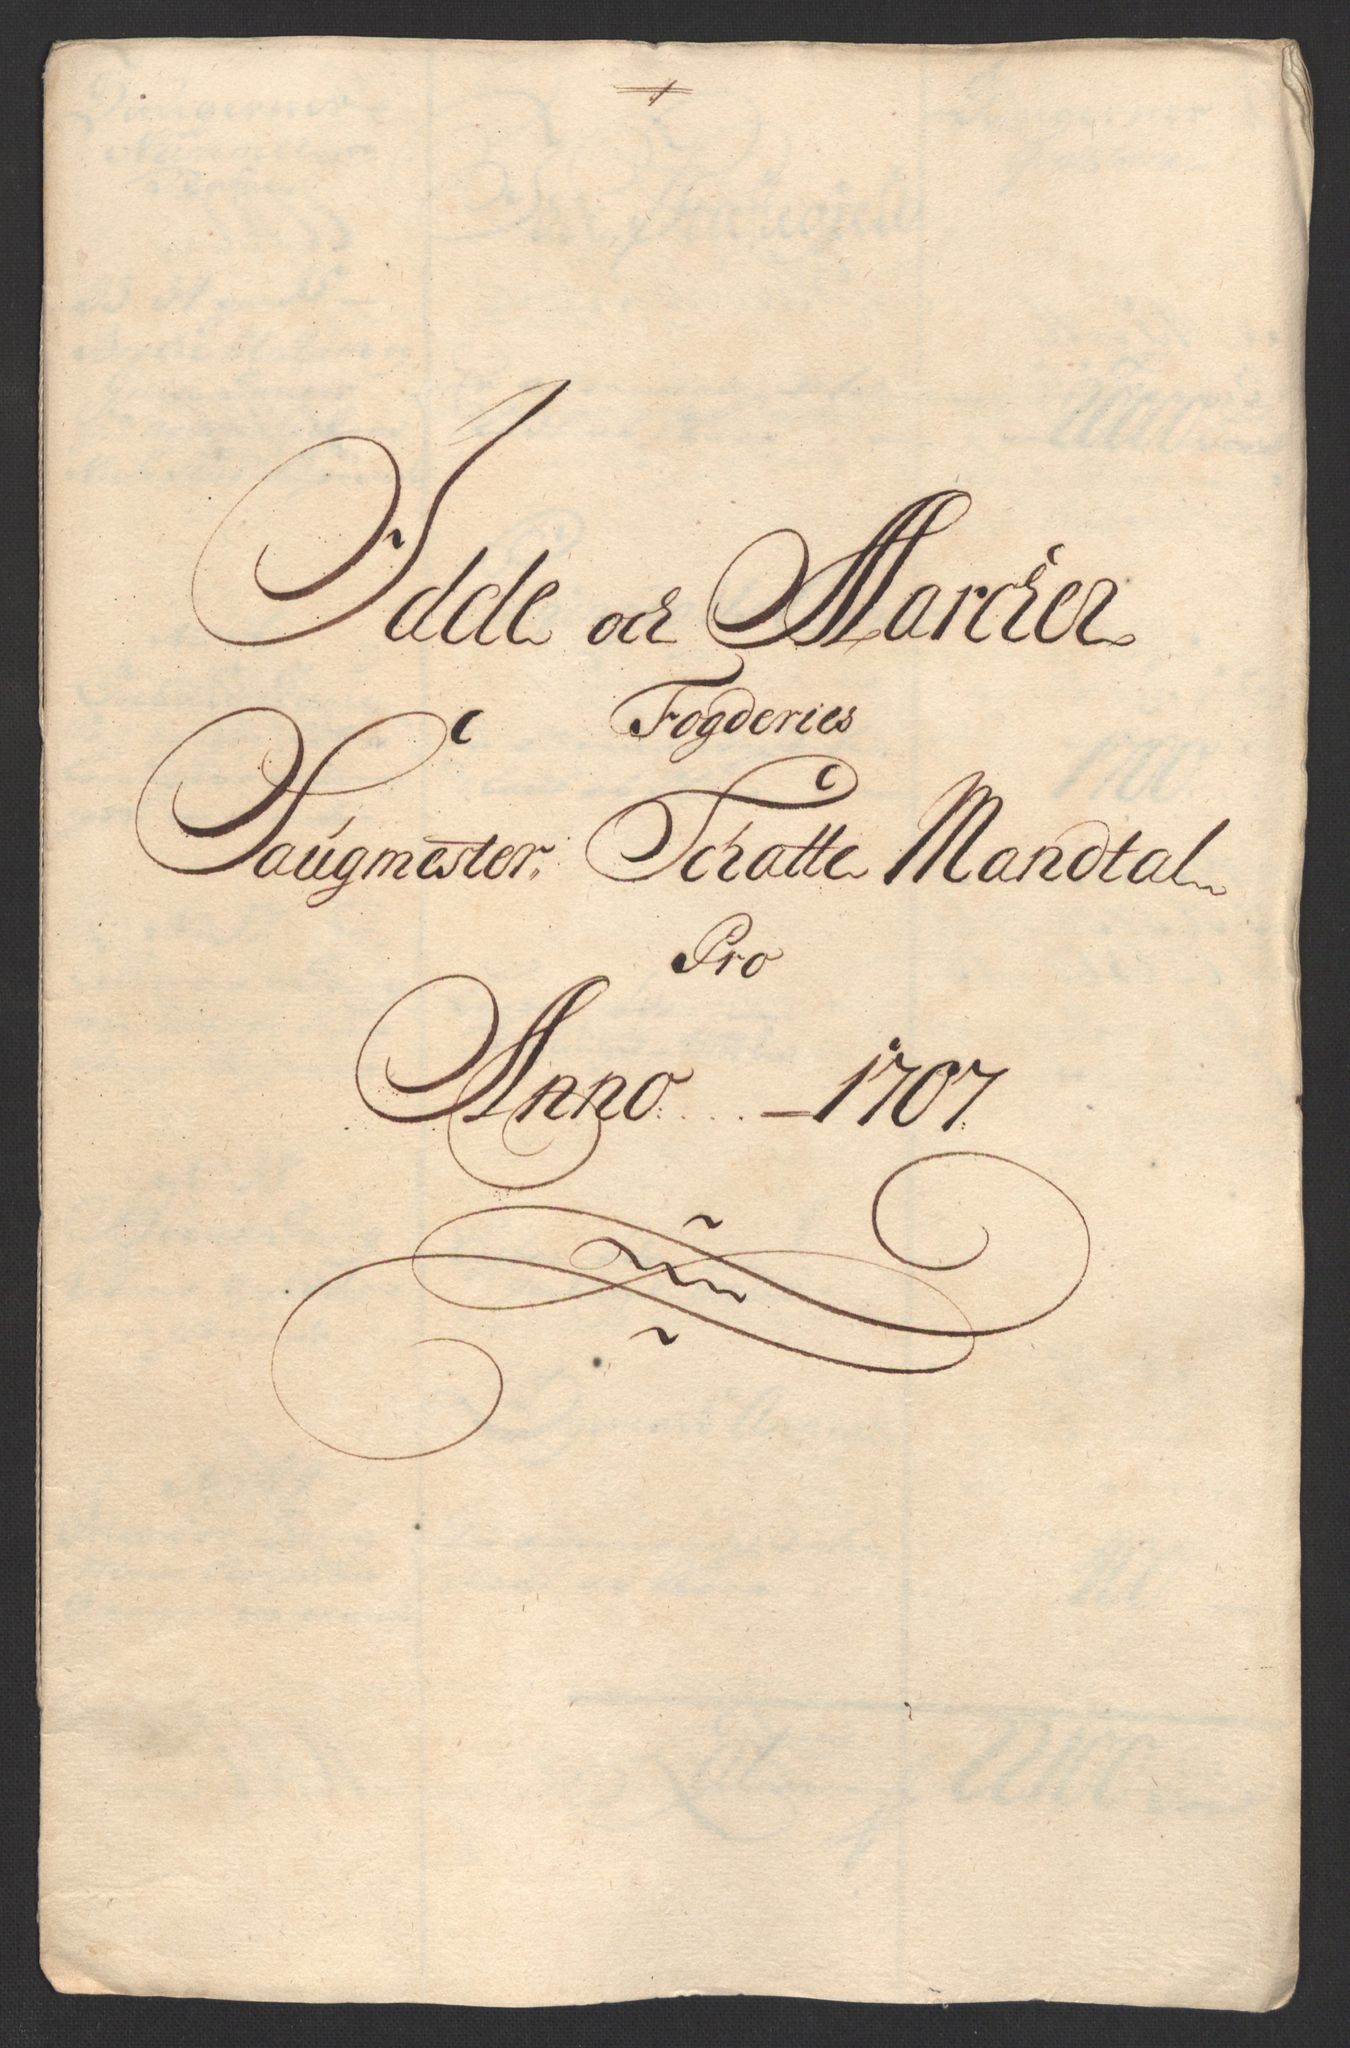 Idde och Marcker
Fogderies
Saúgmester, Schatte Mandtal
Pro
Anno 1707